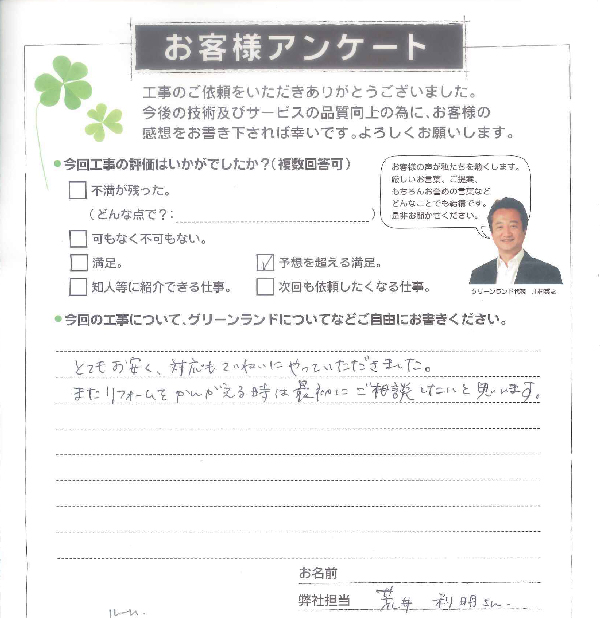 お客様アンケート
工事のご依頼をいただきありがとうございました。
今後の技術及びサービスの品質向上の為に、お客様の
感想をお書き下されば幸いです。よろしくお願いします。
●今回工事の評価はいかがでしたか?(複数回答可)
不満が残った。
(どんな点で?: )
可もなく不可もない。
満足。
予想を超える満足。
知人等に紹介できる仕事。
次回も依頼したくなる仕事。
お客様の声が私たちを熱くします。
厳しいお言葉、ご提案、
もちろんお褒めの言葉など
どんなことでも結構です。
是非お聞かせください。
グリーンランド代表
●今回の工事について、グリーンランドについてなどご自由にお書きください。
とてもお安く、対応もていねいにやっていただきました。
またリフォームをかんがえる時は最初にご相談したいと思います。
お名前
弊社担当 荒井 利明さん